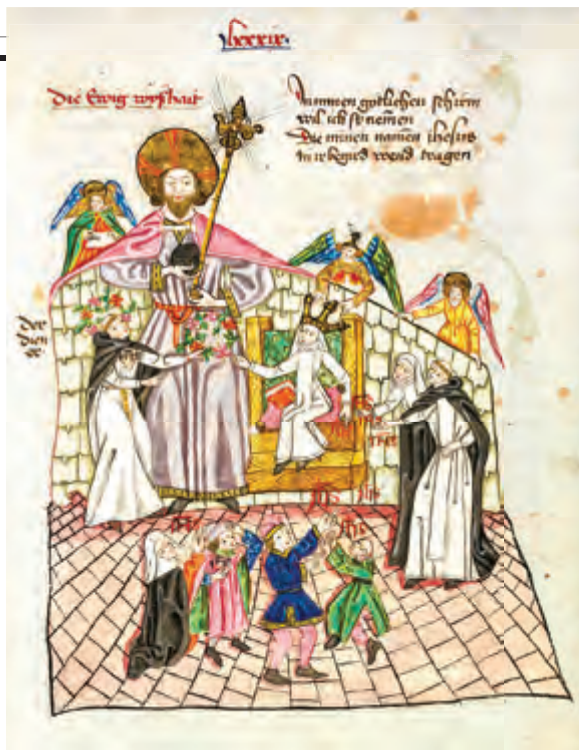 lxxxix.
Die Ewig wyßhait
In minen gotlichen schirm
wil ich sy nemen
Die minen namen ihesus
In ir begird wend tragen
der
dien
ihs
ihs
ihs